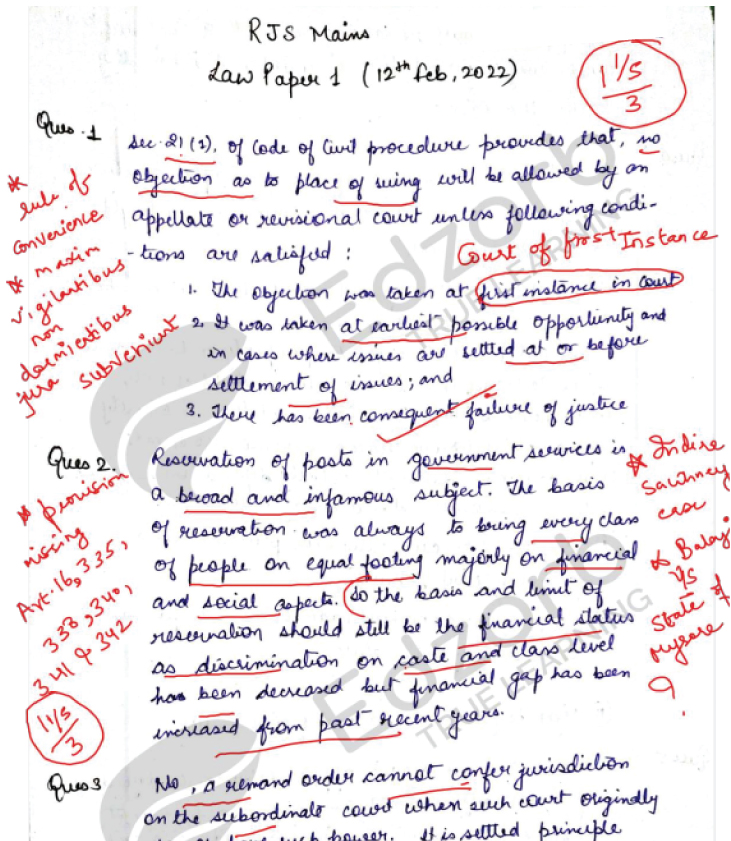 RJS Mains
Law Paper 1 (12th Feb, 2022)
1 1/5
3
Ques. 1
Sec. 21 (1), of Code of Civil procedure provides that, no
objection as to place of suing will be allowed by an
appellate or revisional court unless following condi-
-tions are satisfied :
1. The objection was taken at first instance in court
2. It was taken at earliest possible opportunity and
in cases where issues are settled at or before
settlement of issues; and
3. There has been consequent failure of justice
* rule of
convenience
* maxim
vigilantibus
non
dormientibus
jura subveniunt
Court of first Instance
Ques 2.
Reservation of posts in government services is
a broad and infamous subject. The basis
of reservation was always to bring every class
of people on equal footing majorly on financial
and social aspects. So the basis and limit of
reservation should still be the financial status
as discrimination on caste and class level
has been decreased but financial gap has been
increased from past recent years.
* provision
missing
Art. 16, 335,
338, 340,
341 & 342
1 1/5
3
* Indira
Sawhney
case
* Balaji
v/s
State of
Mysore
Ques 3
No, a remand order cannot confer jurisdiction
on the subordinate court when such court originally
such power. It is settled principle
Edzorb
TRUE LEARNING
Edzorb
TRUE LEARNING